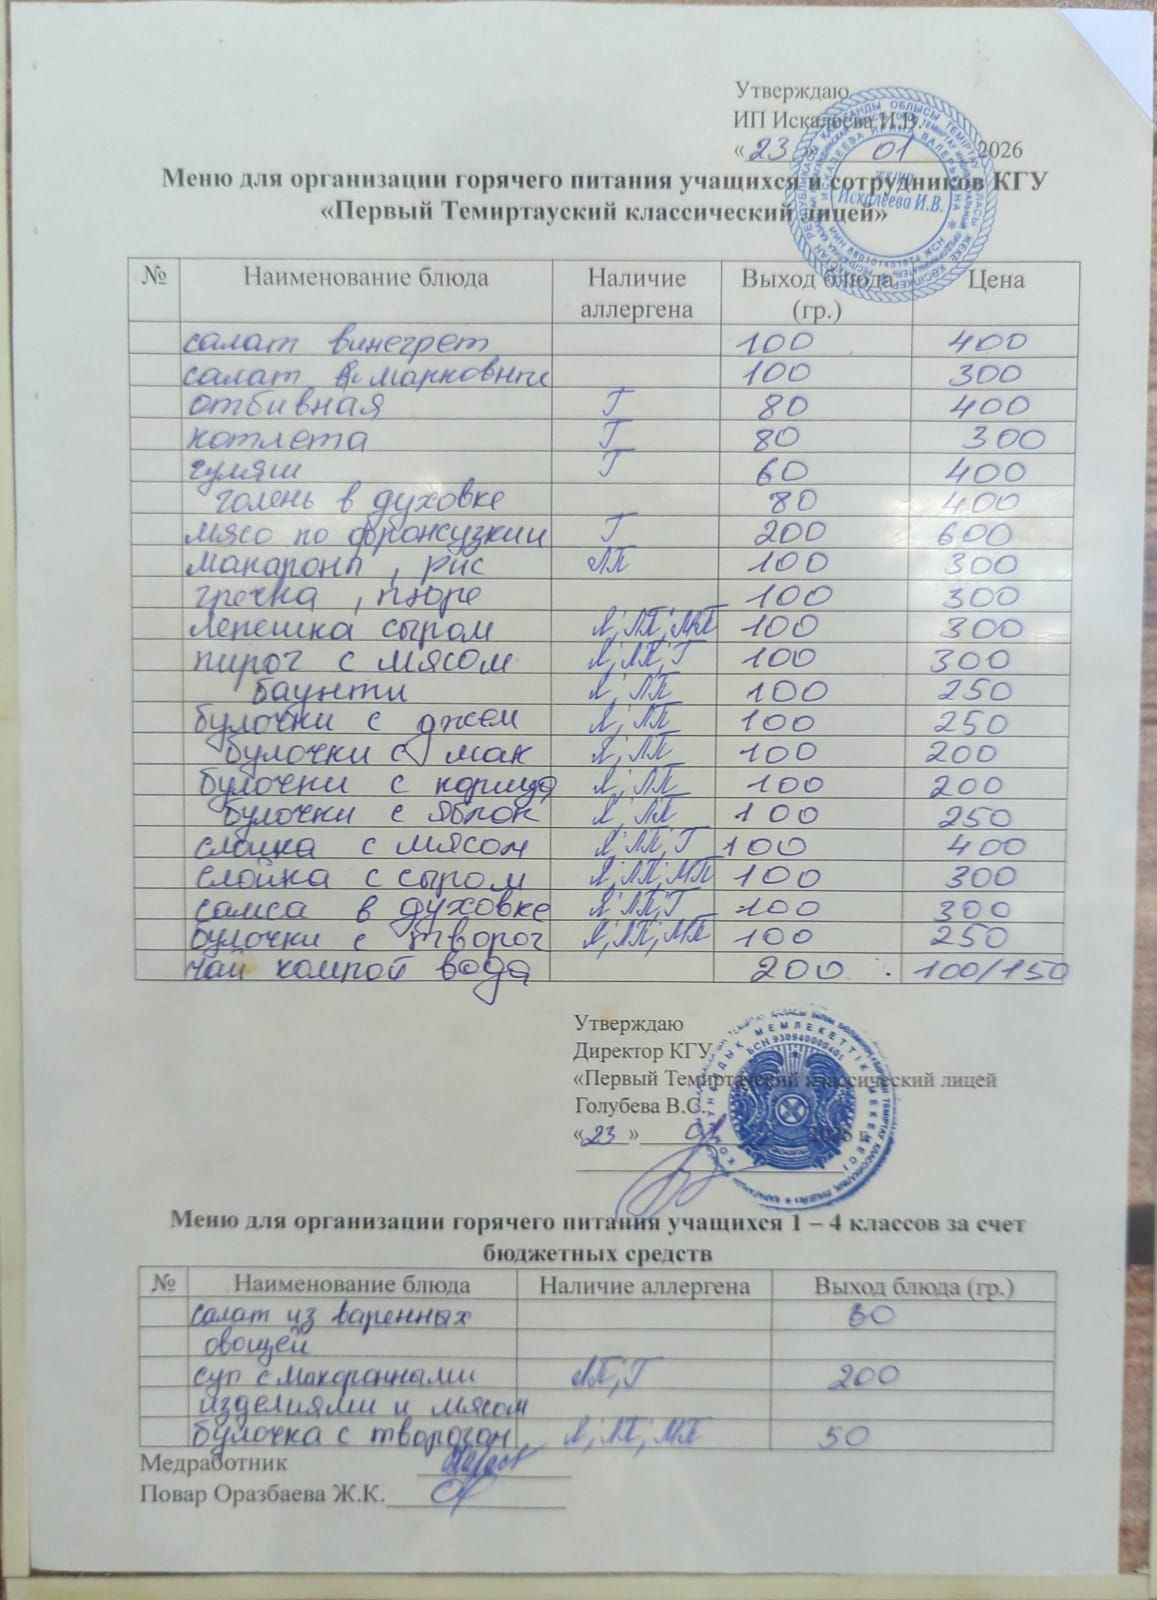 Утверждаю
ИП Искалеева И.В.
«23» 01 2026
Меню для организации горячего питания учащихся и сотрудников КГУ
«Первый Темиртауский классический лицей»
№ Наименование блюда Наличие аллергена Выход блюда (гр.) Цена
салат винегрет 100 400
салат марковный 100 300
отбивная Г 80 400
котлета Г 80 300
гуляш Г 60 400
голень в духовке 80 400
мясо по франсузкии Г 200 600
макароны, рис ЛП 100 300
гречка, пюре 100 300
лепешка сыром Я; ЛП; МП 100 300
пирог с мясом Я; ЛП; Г 100 300
баунти Я; ЛП 100 250
булочки с джем Я; ЛП 100 250
булочки с мак Я; ЛП 100 200
булочки с корица Я; ЛП 100 200
булочки с яблок Я; ЛП 100 250
слойка с мясом Я; ЛП; Г 100 400
слойка с сыром Я; ЛП; МП 100 300
самса в духовке Я; ЛП; Г 100 300
булочки с творог Я; ЛП; МП 100 250
чай компот вода 200 100/150
Утверждаю
Директор КГУ
«Первый Темиртауский классический лицей
Голубева В.С.
«23» 01 2026 г
Меню для организации горячего питания учащихся 1 – 4 классов за счет
бюджетных средств
№ Наименование блюда Наличие аллергена Выход блюда (гр.)
салат из варенных 60
овощей
суп с макаронными ЛП; Г 200
изделиями и мясом
булочка с творогом Я; ЛП; МП 50
Медработник
Повар Оразбаева Ж.К.